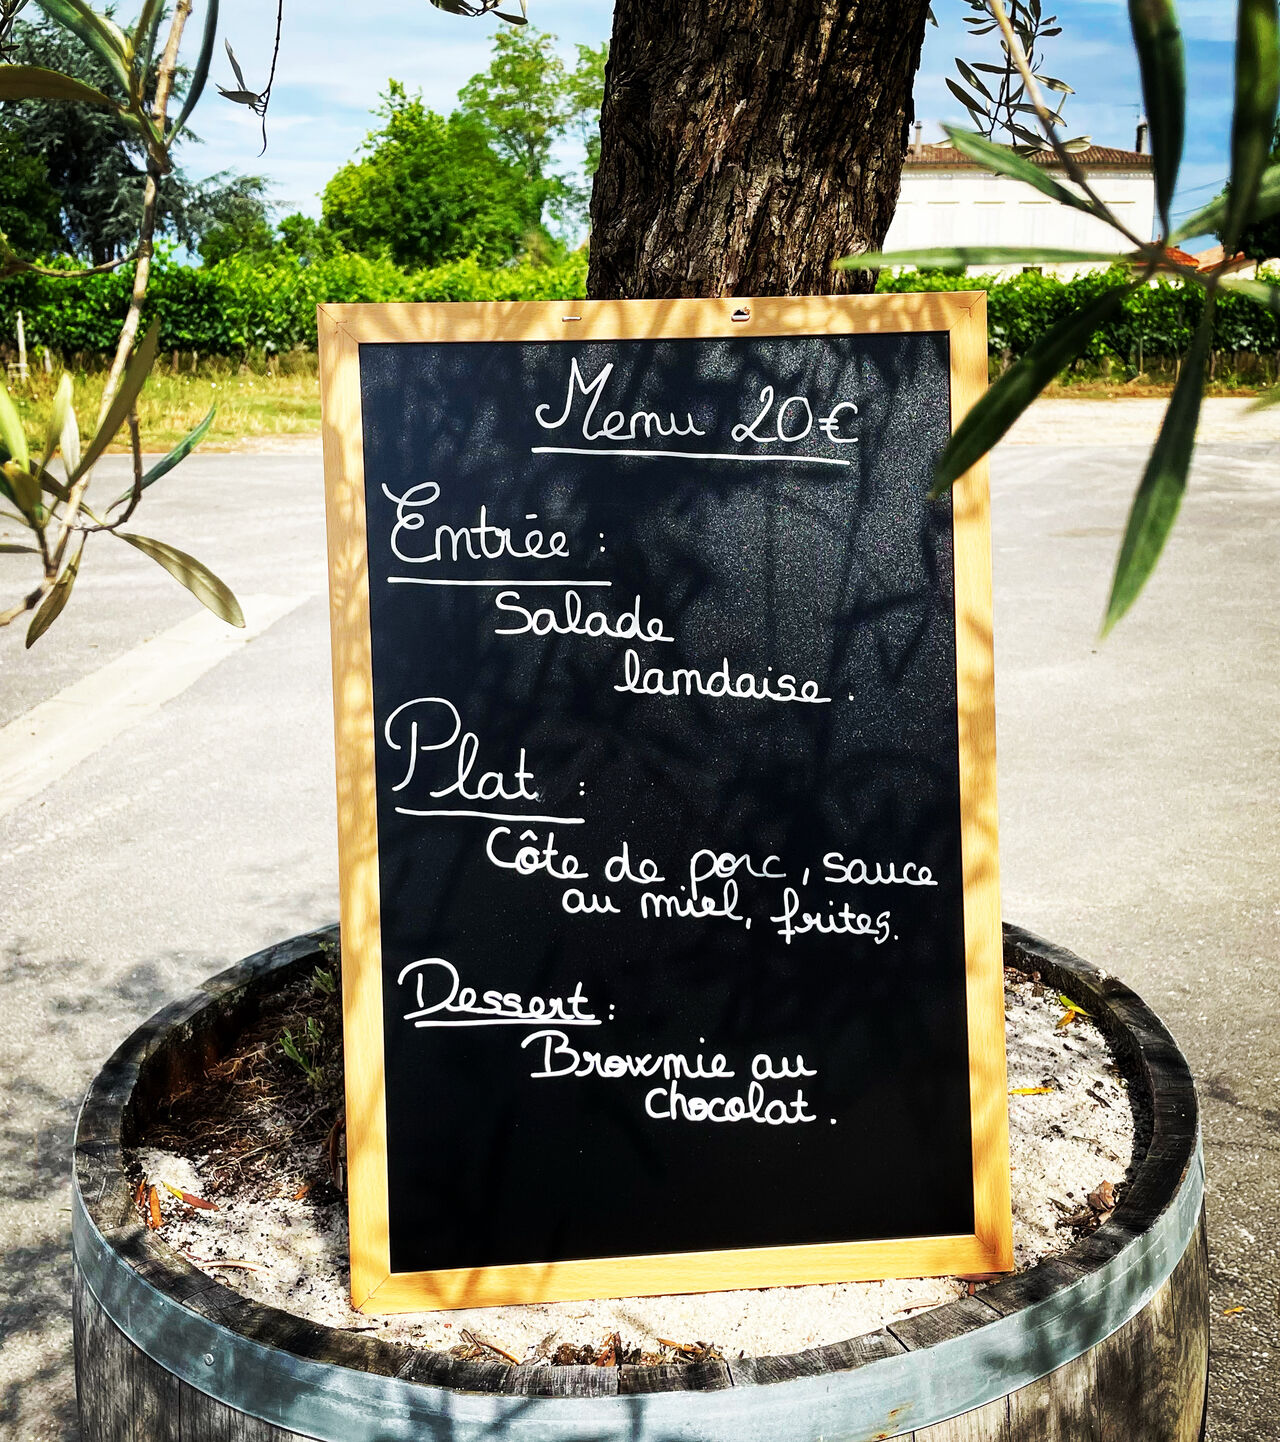 Menu 20€
Entrée :
Salade
landaise.
Plat :
Côte de porc, sauce
au miel, frites.
Dessert :
Brownie au
chocolat.